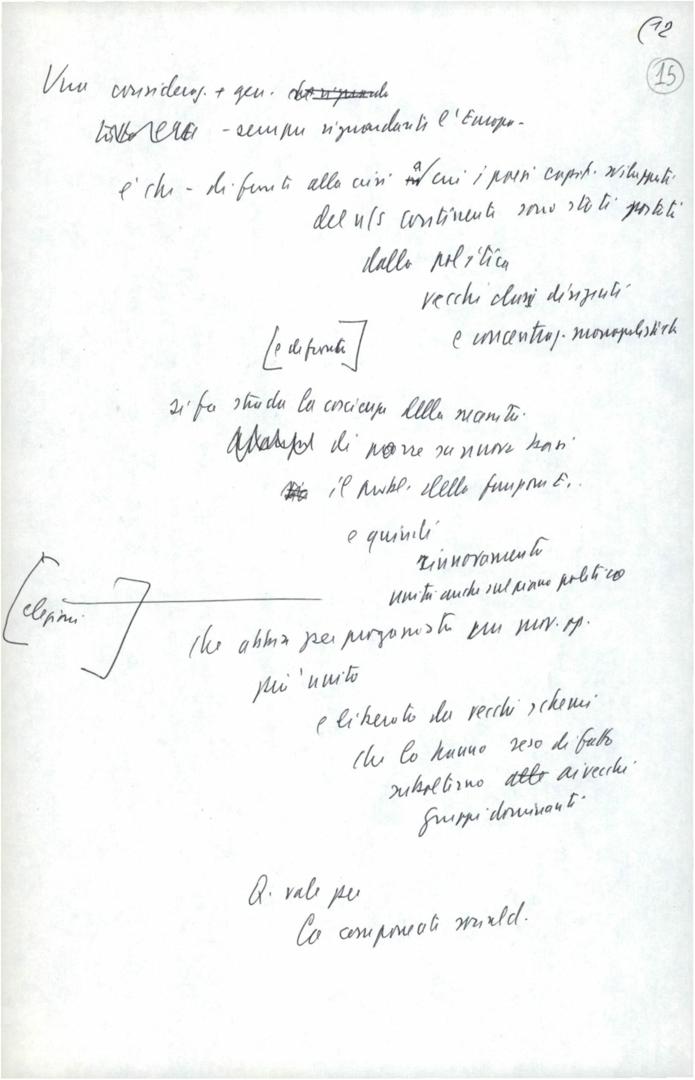 (12
15
Una consideraz. + gen. che riguarda
- sempre riguardanti l'Europa -
è che - di fronte alla crisi a cui i paesi capit. sviluppati
del n/s continente sono stati portati
dalla politica
vecchi classi dirigenti
e concentraz. monopolistich
[e di fronte]
si fa strada la coscienza della necessità
di porre su nuove basi
il probl. della funzione E.
e quindi
rinnovamento
unità anche sul piano politico
[elezioni]
che abbia per protagonista un mov. op.
più unito
e liberato da vecchi schemi
che lo hanno reso di fatto
subalterno allo ai vecchi
gruppi dominanti
Q. vale per
la componente sociald.